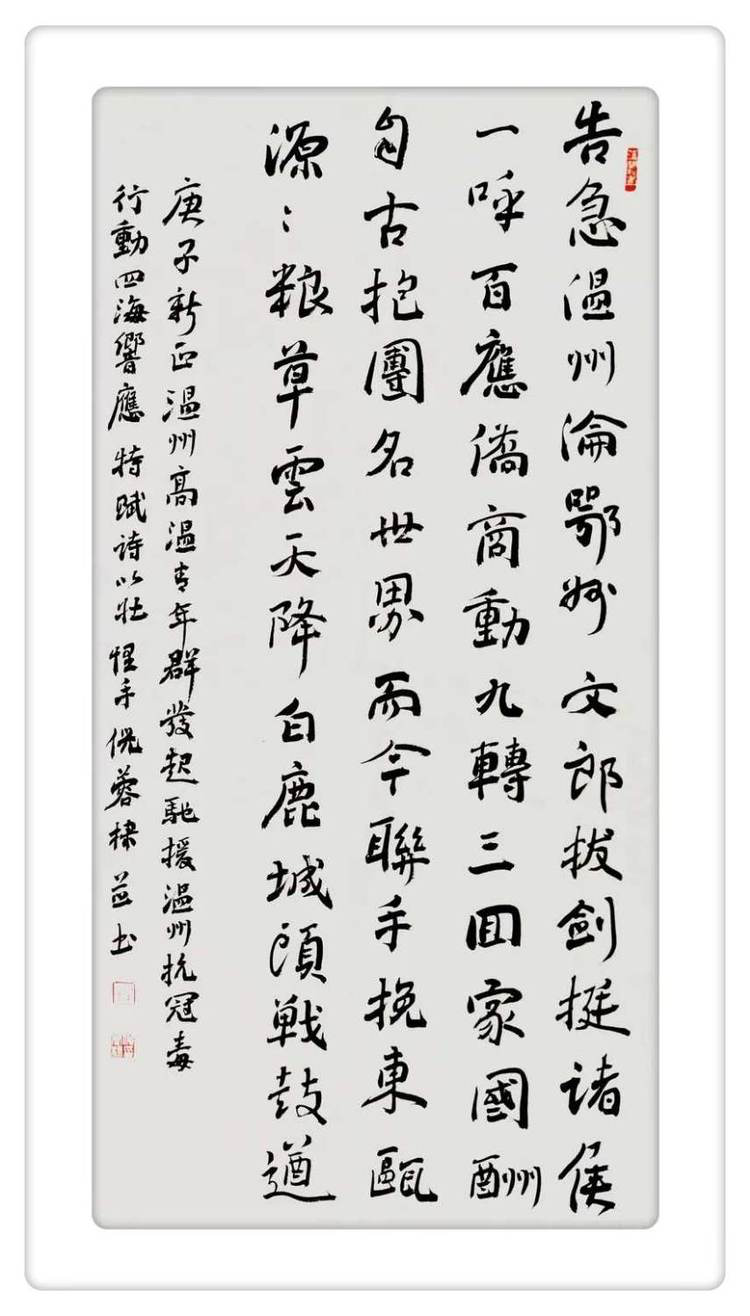 告急温州淪鄂州文郎拔劍挺諸侯
一呼百應僑商動九轉三回家國酬
自古抱團名世界而今聯手挽東甌
源〻粮草雲天降白鹿城頭戰鼓遒
庚子新正温州高温青年群發起馳援温州抗冠毒
行動四海響應特賦詩以壯怪手倪蓉棣并书